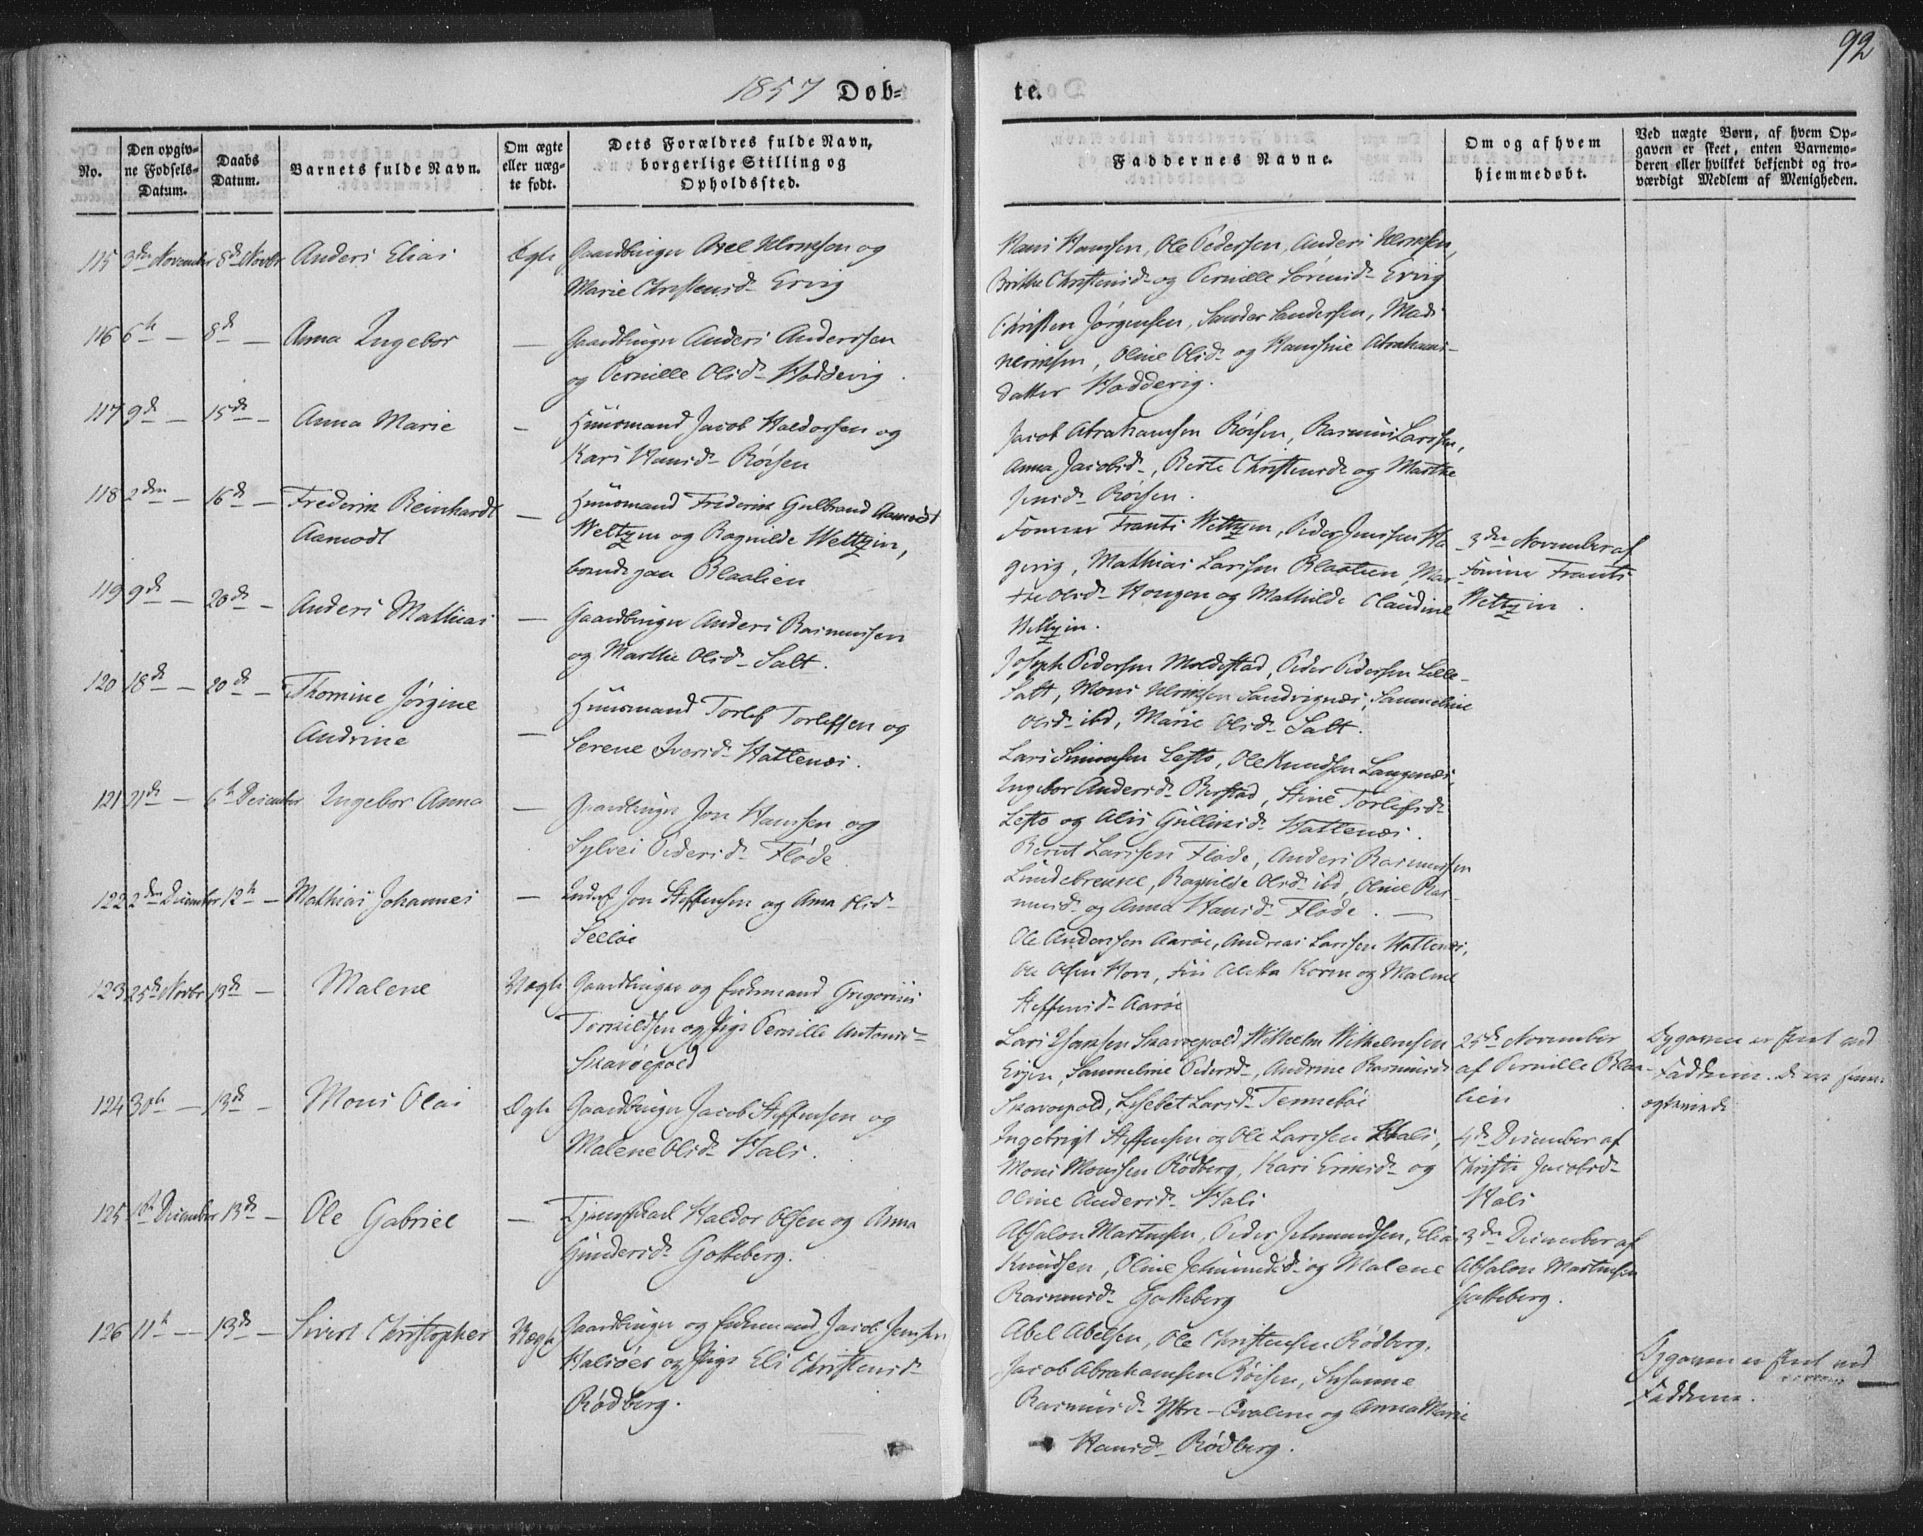 92
1857 Døb=
te.
No.
Den opgiv-
ne Fødsels-
Datum.
Daabs
Datum.
Barnets fulde Navn.
Om ægte
eller uæg-
te født.
Dets Forældres fulde Navn,
borgerlige Stilling og
Opholdssted.
Faddernes Navne.
Om og af hvem
hjemmedøbt.
Ved uægte Børn, af hvem Op-
gaven er skeet, enten Barnemo-
deren eller hvilket bekjendt og tro-
værdigt Medlem af Menigheden.
115 3die November 8de Novbr Anders Elias Ægte Gaardbruger Axel Ulriksen og
Marie Christensd. Ervig
Hans Hansen, Ole Pedersen, Anders Ulriksen,
Brithe Christensd. og Pernille Sørensd. Ervig
116 6te — 8de — Anna Ingebor — Gaardbruger Anders Anderssen
og Pernille Olsd. Haddevig.
Christen Jørgensen, Sander Sandersen, Mads
Ulriksen, Oline Olsd. og Hansine Abrahams-
datter Haddevig.
117 9de — 15de — Anna Marie — Huusmand Jacob Haldorsen og
Kari Hansd. Røisen
Jacob Abrahamsen Røisen, Rasmus Larssen,
Anna Jacobsd., Berte Christensd. og Marthe
Jensd. Røisen.
118 2den — 16de — Frederik Reinhardt
Aamodt
— Huusmand Frederik Gulbrand Aamodt
Weltzin og Ragnilde Weltzin,
Blaalien
Frants Weltzin, Peder Jenssen Ha-
gevig, Mathias Larssen Blaalien, Mar-
the Olsd. Hougen og Mathilde Claudine
Weltzin.
3die November af
Frants
Weltzin.
119 9de — 20de — Anders Mathias — Gaardbruger Anders Rasmussen
og Marthe Olsd. Salt.
Joseph Pedersen Moldestad, Peder Pedersen Lille-
Salt, Mons Ulriksen Sandvignæs, Sammeline
Olsd. ibd, Marie Olsd. Salt.
120 18de — 20de — Thomine Jørgine
Andrine
— Huusmand Torlef Torlefsen og
Serene Iversd. Hattenæs.
Lars Simonsen Lefto, Ole Knudsen Langenæs,
Ingebor Andersd. Berstad, Stine Torlefsd.
Lefto og Alis Gulliksd. Hattenæs.
121 21de — 6te December Ingebor Anna — Gaardbruger Jon Hanssen og
Sylvei Pedersd. Fløde.
Bernt Larssen Fløde, Anders Rasmussen
Lindebrekke, Ragnilde Olsd. ibd, Oline Ras-
musd. og Anna Hansd. Fløde. —
122 2den December 12te — Mathias Johannes — Inders. Jon Steffensen og Anna Olsd.
Selløe
Ole Andersen Aarøe, Andreas Larssen Hattenæs,
Ole Olsen Hove, Aletta Koren og Malene
Steffensd. Aarøe
123 25de Novbr 13de — Malene Uægte Gaardbruger og Enkemand Gregorius
Torkildsen og Pige Pernille Antonis-
Skavøepold
Lars Skavøepold Wilhelm Wilhelmsen
Erjen, Sammeline Pedersd., Andrine Rasmusd.
Skavøepold, Lisebet Larsd. Tennebøe
25de November
af Pernille Blaa-
lien
Opgaven er skeet ved
Fadderne.
124 30te — 13de — Mons Olai Ægte Gaardbruger Jacob Steffensen og
Malene Olsd. Hals.
Ingebrigt Steffensen og Ole Larssen Hals,
Mons Monssen Rødberg, Kari Eriksd. og
Oline Andersd. Hals
4de December af
Christi Jacobsd.
Hals
125 1ste December 13de — Ole Gabriel — Tjenestkarl Haldor Olsen og Anna
Gundersd. Gotteberg.
Absalon Martinsen, Peder Jetmundsen, Elias
Knudsen, Oline Jetmundsd. og Malene
Rasmusd. Gotteberg
3die December af
Absalon Martinsen
Gotteberg.
126 11te — 13de — Sivert Christopher Uægte Gaardbruger og Enkemand Jacob Jenssen
Halsøer og Pige Eli Christensd.
Rødberg.
Abel Abelsen, Ole Christensen Rødberg,
Jacob Abrahamsen Røisen, Susanne
Rasmusd. Yttre- og Anna Marie
Hansd. Rødberg.
Opgaven er skeet ved
Fadderne.